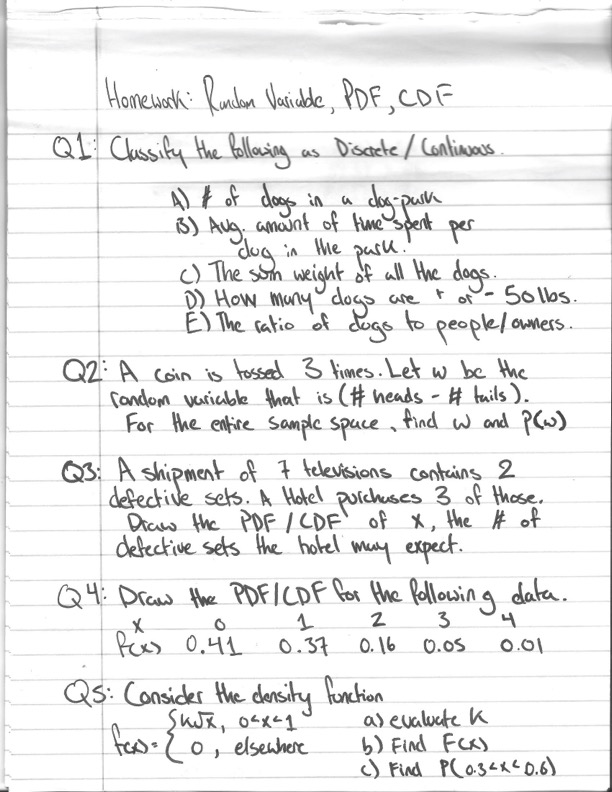 Homework: Random Variable, PDF, CDF
Q1: Classify the following as Discrete/Continuous.
A) # of dogs in a dog-park
B) Avg. amount of time spent per
dog in the park.
C) The sum weight of all the dogs.
D) How many dogs are + or - 50 lbs.
E) The ratio of dogs to people/owners.
Q2: A coin is tossed 3 times. Let w be the
random variable that is (# heads - # tails).
For the entire sample space, find w and P(w)
Q3: A shipment of 7 televisions contains 2
defective sets. A Hotel purchases 3 of those.
Draw the PDF/CDF of x, the # of
defective sets the hotel may expect.
Q4: Draw the PDF/CDF for the following data.
x 0 1 2 3 4
f(x) 0.41 0.37 0.16 0.05 0.01
Q5: Consider the density function
f(x) = { k√x, 0<x<1 a) evaluate K
0, elsewhere b) Find F(x)
c) Find P(0.3<x<0.6)